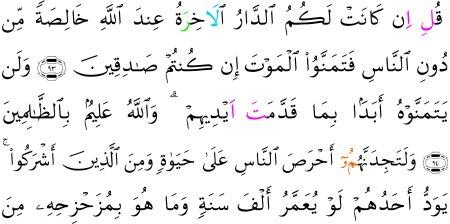 قُلِ اِن كَانَتْ لَكُمُ الدَّارُ الَاخِرَةُ عِندَ اللَّهِ خَالِصَةً مِّن
دُونِ النَّاسِ فَتَمَنَّوُا الْمَوْتَ إِن كُنتُمْ صَادِقِينَ ۝٩٣ وَلَن
يَتَمَنَّوْهُ أَبَدًا بِمَا قَدَّمَتَ اَيْدِيهِمْ ۗ وَاللَّهُ عَلِيمٌ بِالظَّالِمِينَ
۝٩٤ وَلَتَجِدَنَّهُمُۥٓ أَحْرَصَ النَّاسِ عَلَىٰ حَيَوٰةٍ وَمِنَ الَّذِينَ أَشْرَكُوا ۚ
يَوَدُّ أَحَدُهُمْ لَوْ يُعَمَّرُ أَلْفَ سَنَةٍ وَمَا هُوَ بِمُزَحْزِحِهِ مِنَ